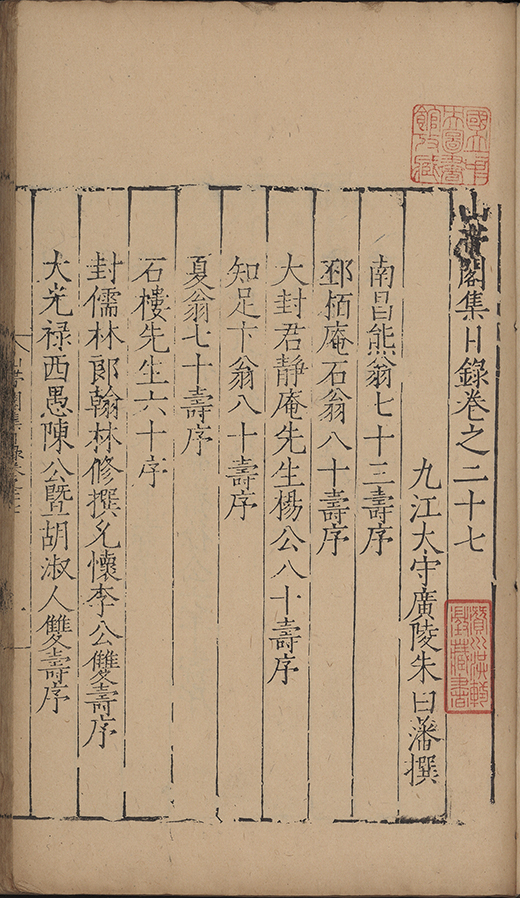 山帶閣集目錄卷之二十七
九江太守廣陵朱曰藩撰
南昌熊翁七十三壽序
邳栢庵石翁八十壽序
大封君靜庵先生楊公八十壽序
知足卞翁八十壽序
夏翁七十壽序
石樓先生六十序
封儒林郎翰林修撰允懷李公雙壽序
大光祿西愚陳公暨胡淑人雙壽序
國立中央圖書館收藏